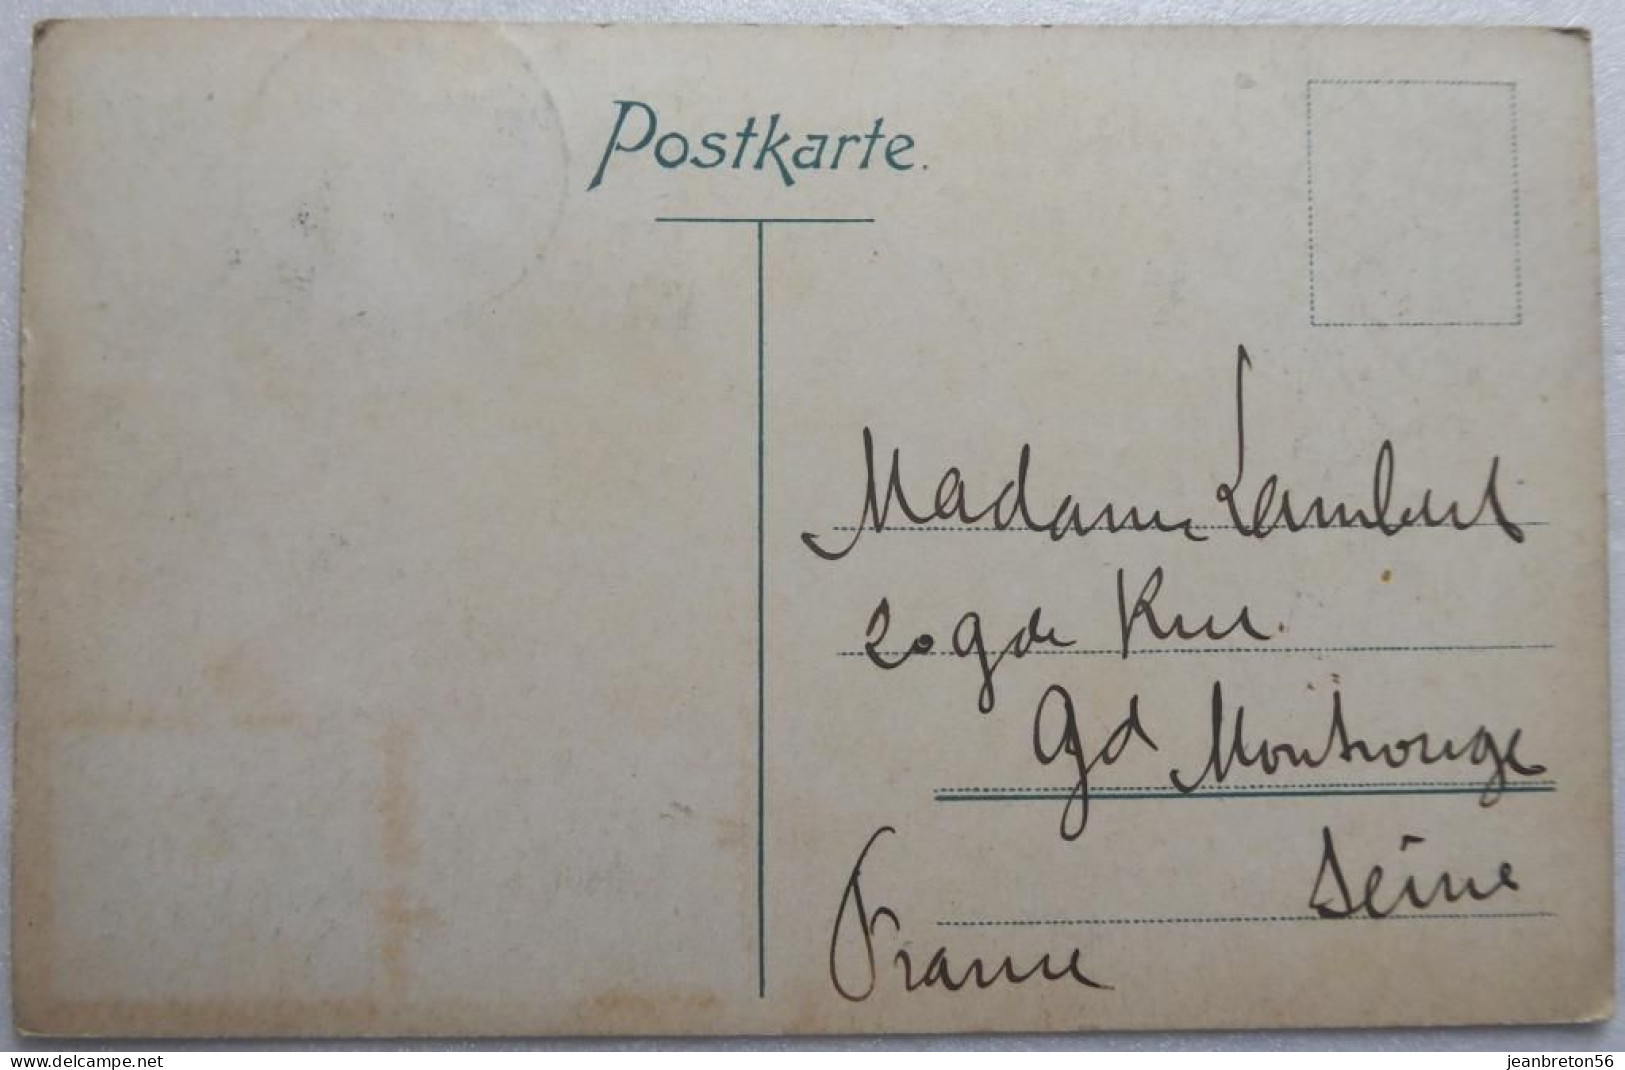 Postkarte.
Madame Lambert
20 gde Rue.
gd Montrouge
Seine
France
www.delcampe.net
jeanbreton56